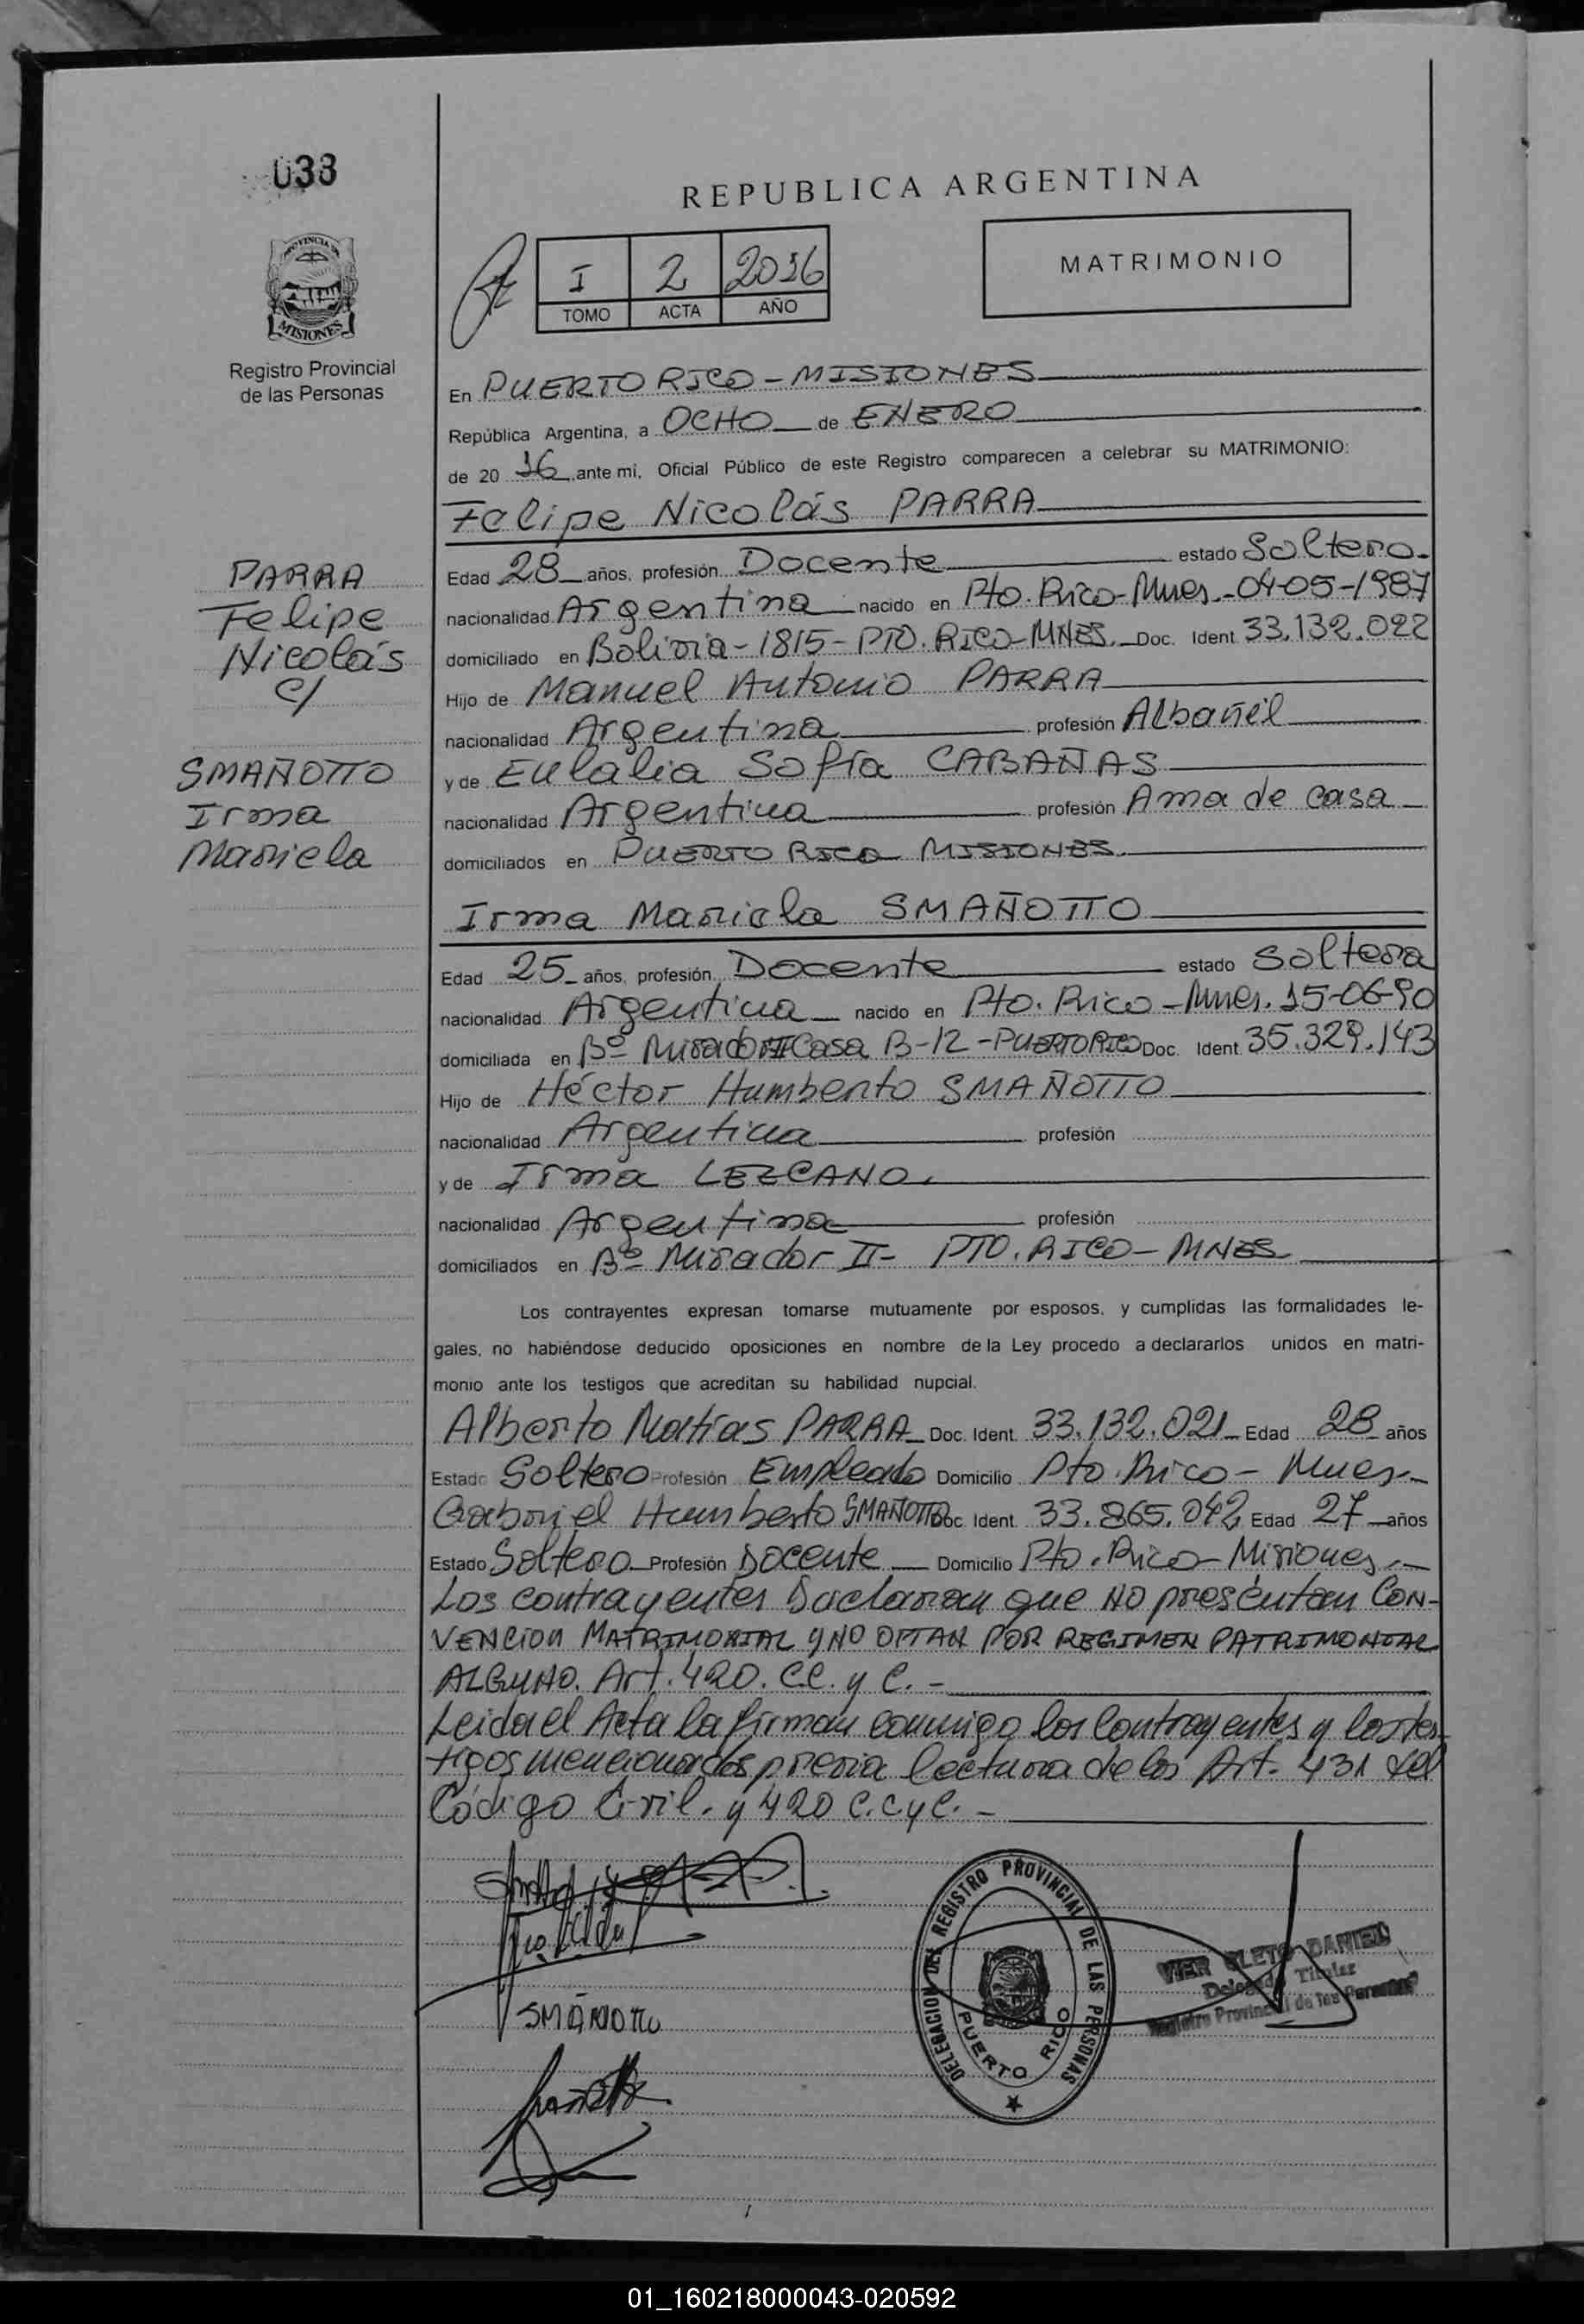 033
REPUBLICA ARGENTINA
I 2 2016
TOMO ACTA AÑO
MATRIMONIO
PROVINCIA DE
MISIONES
Registro Provincial
de las Personas
En PUERTO RICO - MISIONES
República Argentina, a OCHO de ENERO
de 20 16 ante mi, Oficial Público de este Registro comparecen a celebrar su MATRIMONIO:
Felipe Nicolás PARRA
PARRA
Felipe
Nicolás
c/
SMAÑOTTO
Irma
Mariela
Edad 28 años, profesión Docente estado Soltero.
nacionalidad Argentina nacido en Pto. Rico-Mnes.-04-05-1987
domiciliado en Bolivia-1815-PTO. RICO-MNES. Doc. Ident. 33.132.022
Hijo de Manuel Antonio PARRA
nacionalidad Argentina profesión Albañil
y de Eulalia Sofía CABAÑAS
nacionalidad Argentina profesión Ama de casa
domiciliados en PUERTO RICO MISIONES
Irma Mariela SMAÑOTTO
Edad 25 años, profesión Docente estado Soltera
nacionalidad Argentina nacido en Pto. Rico-Mnes. 15-06-90
domiciliada en Bº Mirador II Casa B-12-PUERTO RICO Doc. Ident. 35.329.143
Hijo de Héctor Humberto SMAÑOTTO
nacionalidad Argentina profesión
y de Irma LEZCANO.
nacionalidad Argentina profesión
domiciliados en Bº Mirador II- PTO. RICO-MNES
Los contrayentes expresan tomarse mutuamente por esposos, y cumplidas las formalidades le-
gales, no habiéndose deducido oposiciones en nombre de la Ley procedo a declararlos unidos en matri-
monio ante los testigos que acreditan su habilidad nupcial.
Alberto Matías PARRA Doc. Ident. 33.132.021 Edad 28 años
Estado Soltero Profesión Empleado Domicilio Pto. Rico- Mnes.
Gabriel Humberto SMAÑOTTO Doc. Ident. 33.865.042 Edad 27 años
Estado Soltero Profesión Docente Domicilio Pto. Rico-Misiones.
Los contrayentes Declaran que NO presentan CON-
VENCION MATRIMONIAL y NO OPTAN POR REGIMEN PATRIMONIAL
ALGUNO. Art. 420. CC. y C. -
Leida el Acta la firman conmigo los Contrayentes y los tes-
tigos mencionados previa lectura de los Art. 431 del
Código Civil. y 420 C.C y C. -
SMAÑOTTO
DELEGACION DEL REGISTRO PROVINCIAL DE LAS PERSONAS
PUERTO RICO
CLETO DANIEL
Delegado Titular
Registro Provincial de las Personas
01_160218000043-020592